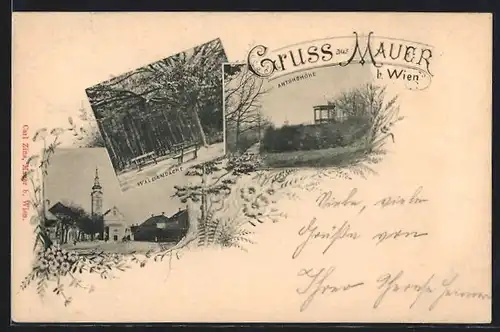 Gruss aus Mauer
b. Wien
ANTONSHÖHE
Carl Zins, Mauer b. Wien.
Viele, viele
Grüße von
Ihrer